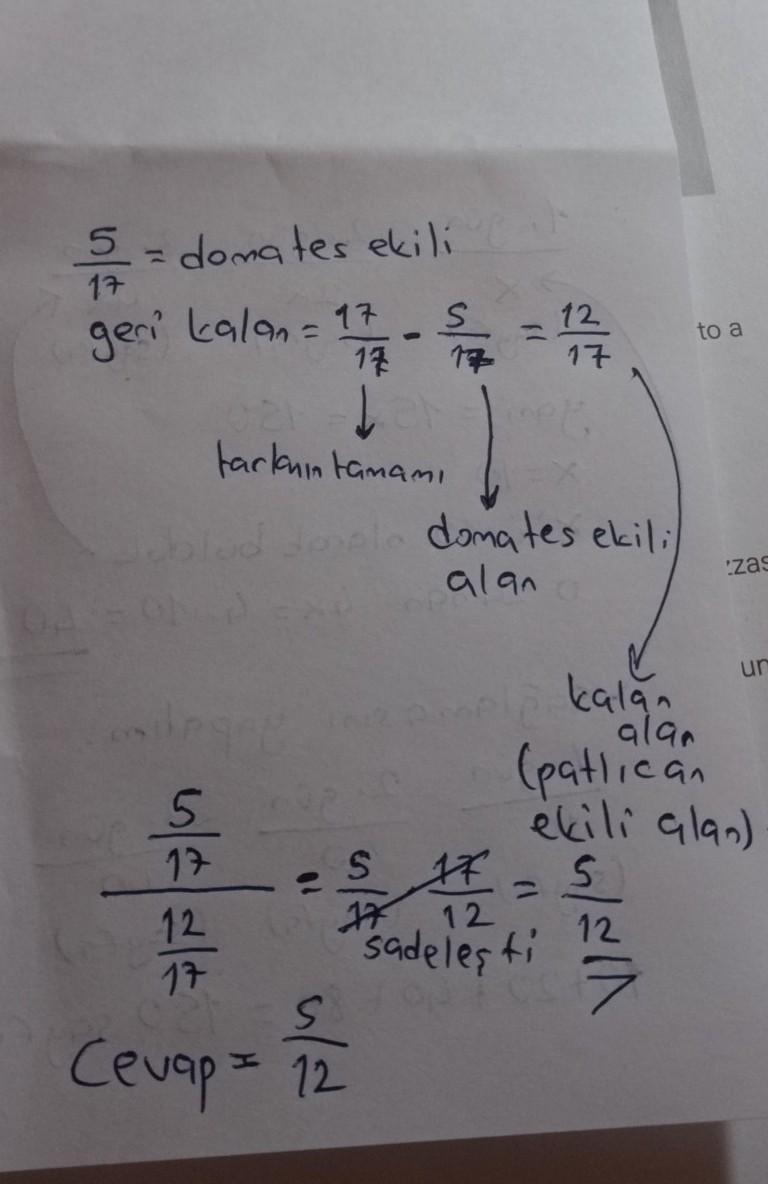 5/17 = domates ekili
geri kalan = 17/17 - 5/17 = 12/17
tarlanın tamamı
domates ekili
alan
kalan
alan
(patlıcan
ekili alan)
5/17 / 12/17 = 5/17 . 17/12 = 5/12
sadeleşti
Cevap = 5/12
to a
un